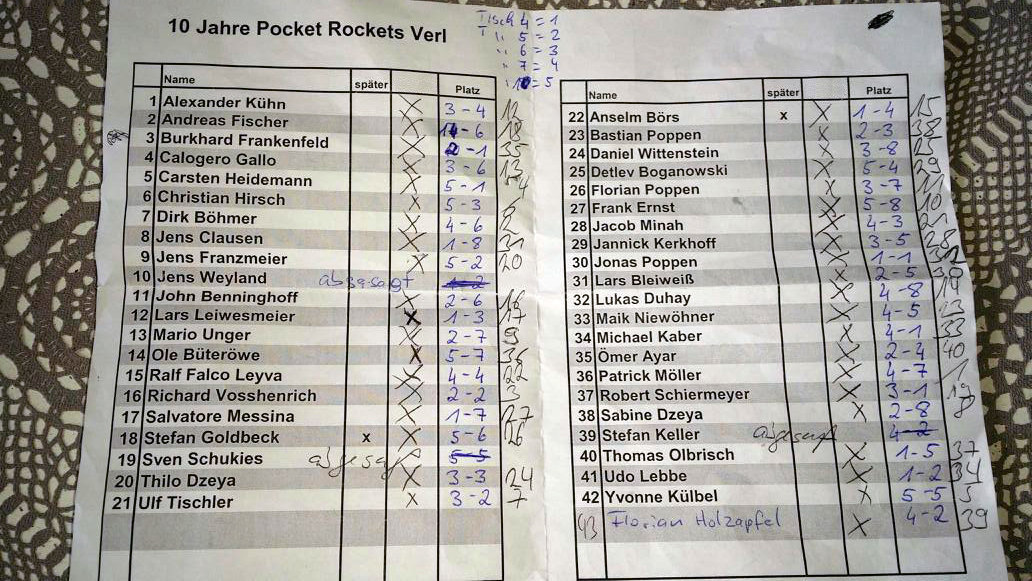 10 Jahre Pocket Rockets Verl
Tisch 4 = 1
T " 5 = 2
" 6 = 3
" 7 = 4
" 10 = 5
Name später Platz
1 Alexander Kühn X 3-4 12
2 Andreas Fischer X 4-6 18
3 Burkhard Frankenfeld X 2-1 35
4 Calogero Gallo X 3-6 13
5 Carsten Heidemann X 5-1 4
6 Christian Hirsch X 5-3
7 Dirk Böhmer X 4-6
8 Jens Clausen X 1-8 31
9 Jens Franzmeier X 5-2 20
10 Jens Weyland abgesagt 1-2
11 John Benninghoff X 2-6 16
12 Lars Leiwesmeier X 1-3 17
13 Mario Unger X 2-7 9
14 Ole Büteröwe X 5-7 36
15 Ralf Falco Leyva X 4-4 22
16 Richard Vosshenrich X 2-2 3
17 Salvatore Messina X 1-7 27
18 Stefan Goldbeck x X 5-6 26
19 Sven Schukies abgesagt 5-5
20 Thilo Dzeya X 3-3 24
21 Ulf Tischler X 3-2 7
Name später Platz
22 Anselm Börs x X 1-4 15
23 Bastian Poppen X 2-3 38
24 Daniel Wittenstein X 3-8 25
25 Detlev Boganowski X 5-4 29
26 Florian Poppen X 3-7 11
27 Frank Ernst X 5-8 10
28 Jacob Minah X 4-3 21
29 Jannick Kerkhoff X 3-5 28
30 Jonas Poppen X 1-1
31 Lars Bleiweiß X 2-5
32 Lukas Duhay X 4-8 19
33 Maik Niewöhner X 4-5
34 Michael Kaber X 4-1 33
35 Ömer Ayar X 2-4 40
36 Patrick Möller X 4-7 1
37 Robert Schiermeyer X 3-1
38 Sabine Dzeya X 2-8 8
39 Stefan Keller abgesagt 4-2
40 Thomas Olbrisch X 1-5 37
41 Udo Lebbe X 1-2 34
42 Yvonne Külbel X 5-5
43 Florian Holzapfel X 4-2 39